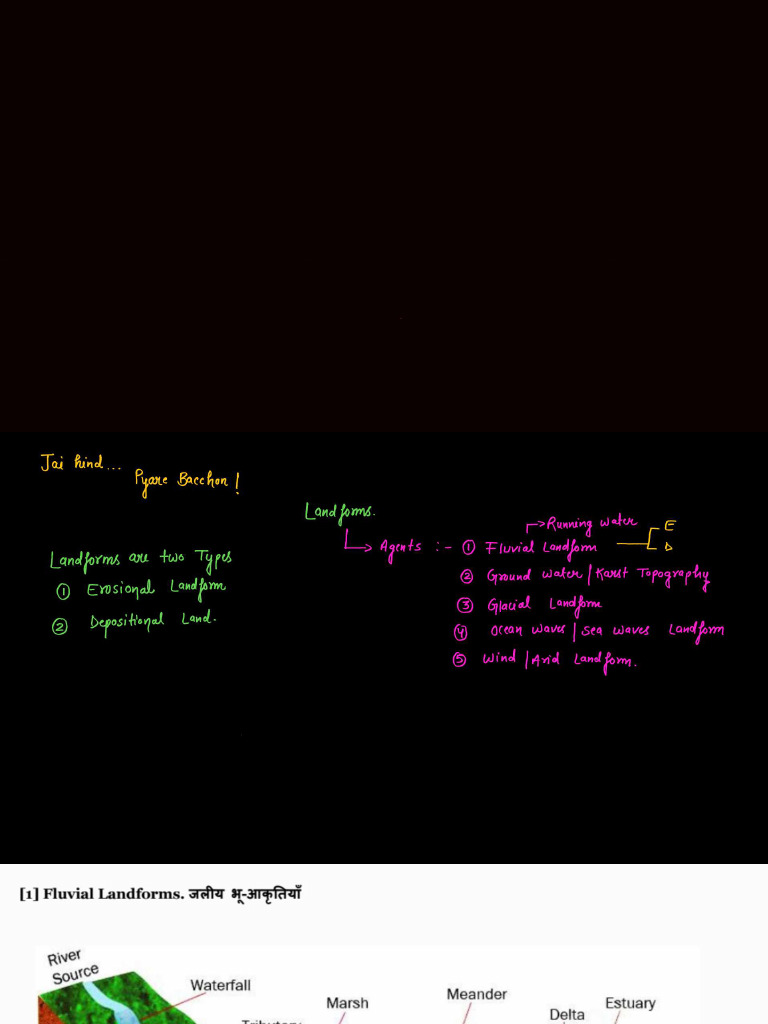 Jai hind...
Pyare Bacchon!
Landforms.
Running water
E
Agents :- ① Fluvial Landform
D
② Ground water/Karst Topography
③ Glacial Landform
④ Ocean waves/Sea waves Landform
⑤ Wind/Arid Landform.
Landforms are two Types
① Erosional Landform
② Depositional Land.
[1] Fluvial Landforms. जलीय भू-आकृतियाँ
River
Source
Waterfall
Tributary
Marsh
Meander
Delta
Estuary